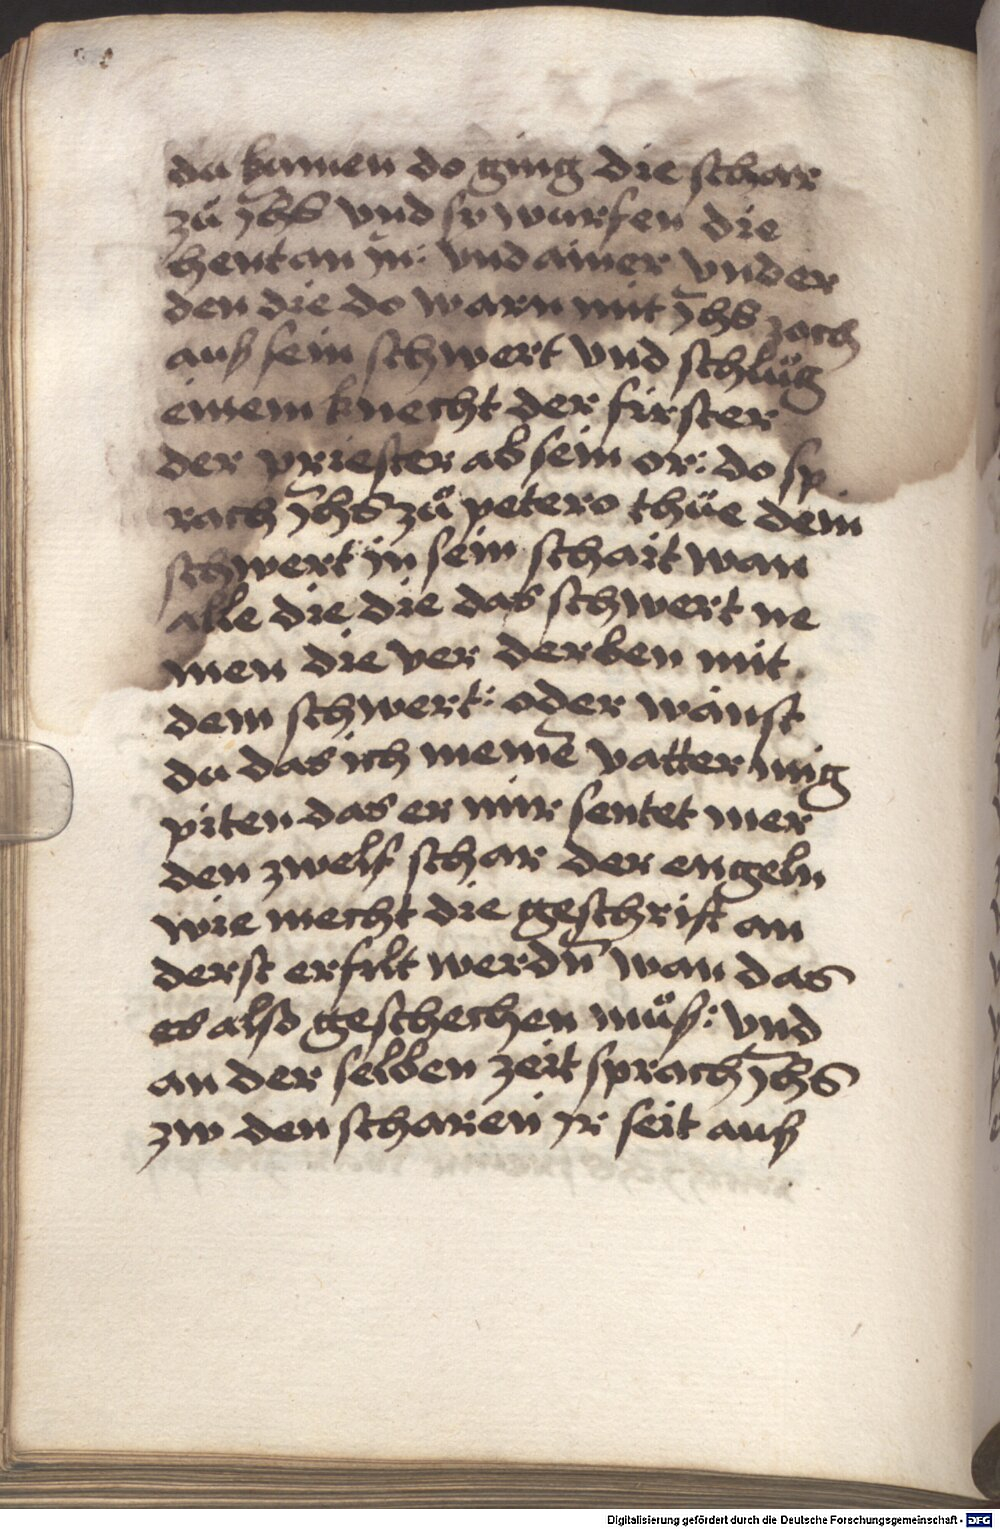 du kumen do ging die schar
zů Jhs vnd sy wurfen die
hent an in: vnd ainer vnder
den die do warn mit Jhs zoch
auß sein schwert vnd schlůg
einem knecht der firster
der priester ab sein or: do sp
rach Jhs zů petero thůe dein
schwert in sein schait wan
alle die die das schwert ne
men die ver derben mit
dem schwert: oder wänst
du das ich meinē vatter mig
piten das er mir sentet mer
den zwelf schar der engeln
wie mecht die geschrift an
derst erfilt werdn̄ wan das
es also geschechen můß: vnd
an der selben zeit sprach Jhs
zw den scharen ir seit auß
Digitalisierung gefördert durch die Deutsche Forschungsgemeinschaft - DFG